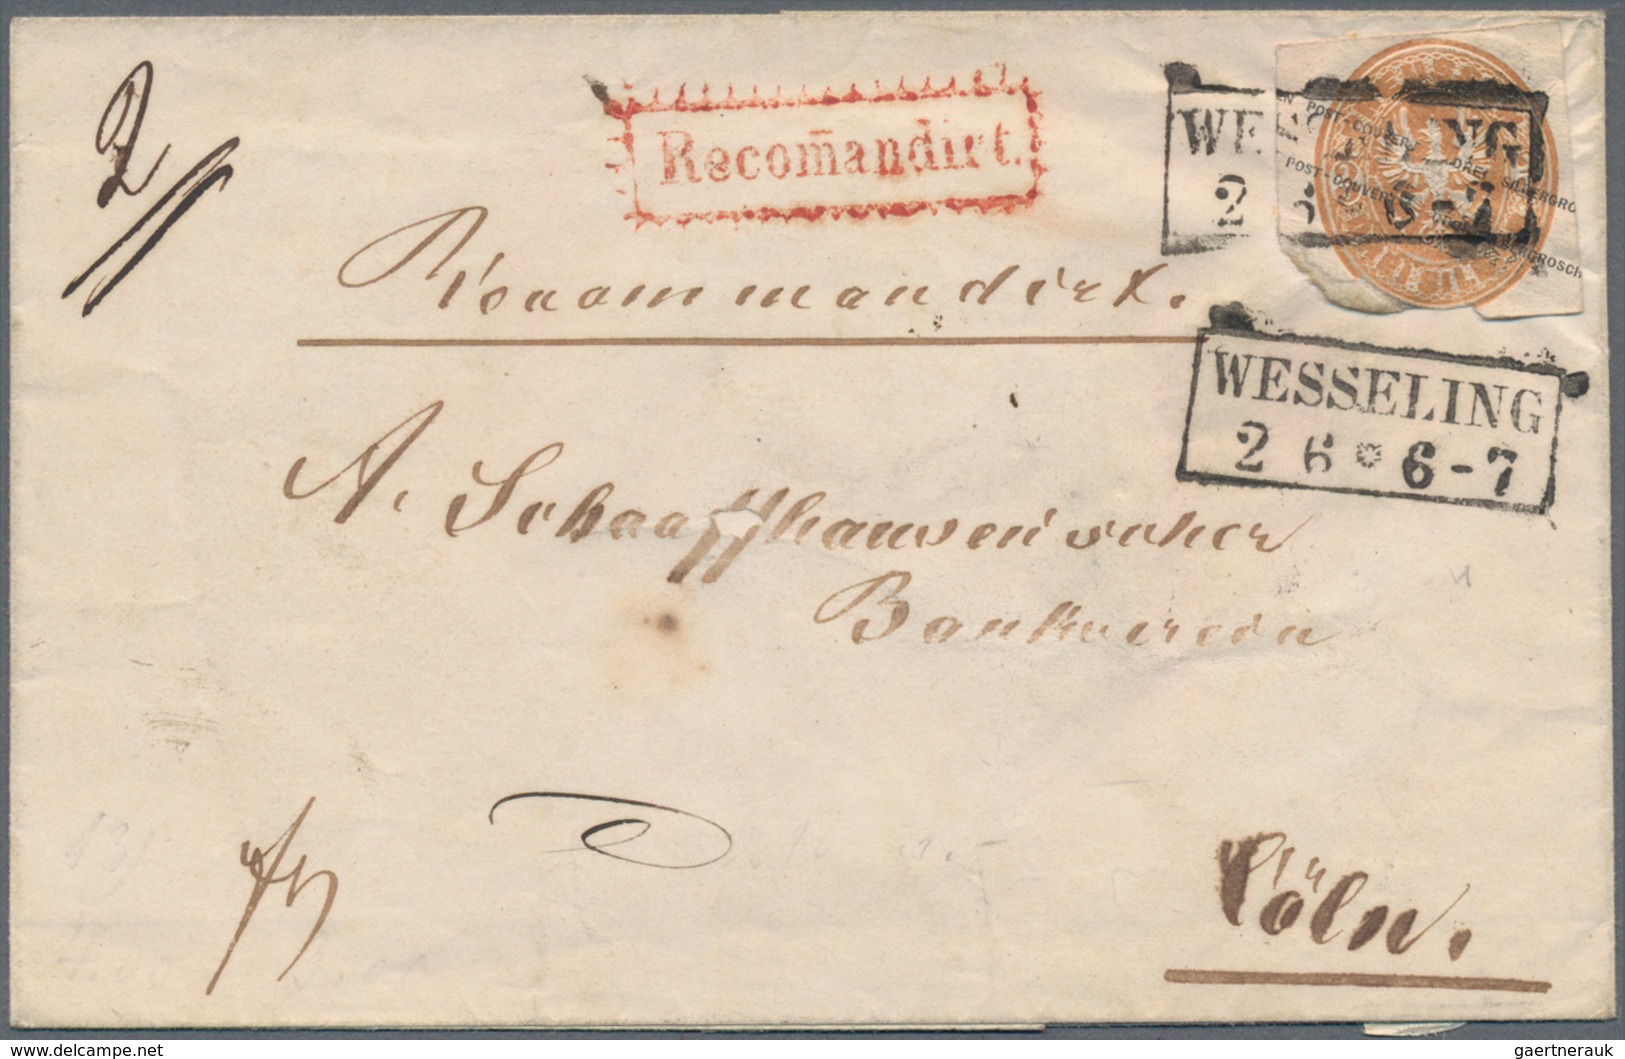 2
Recom̄andirt.
WE NG
EN POST-COUVERT DREI SILBERGRO
POST-COUVERT
ERGROSCH
Recommandirt.
WESSELING
2 6 * 6-7
A. Schaaffhausen'scher
Bankverein
Cöln.
www.delcampe.net
gaertnerauk